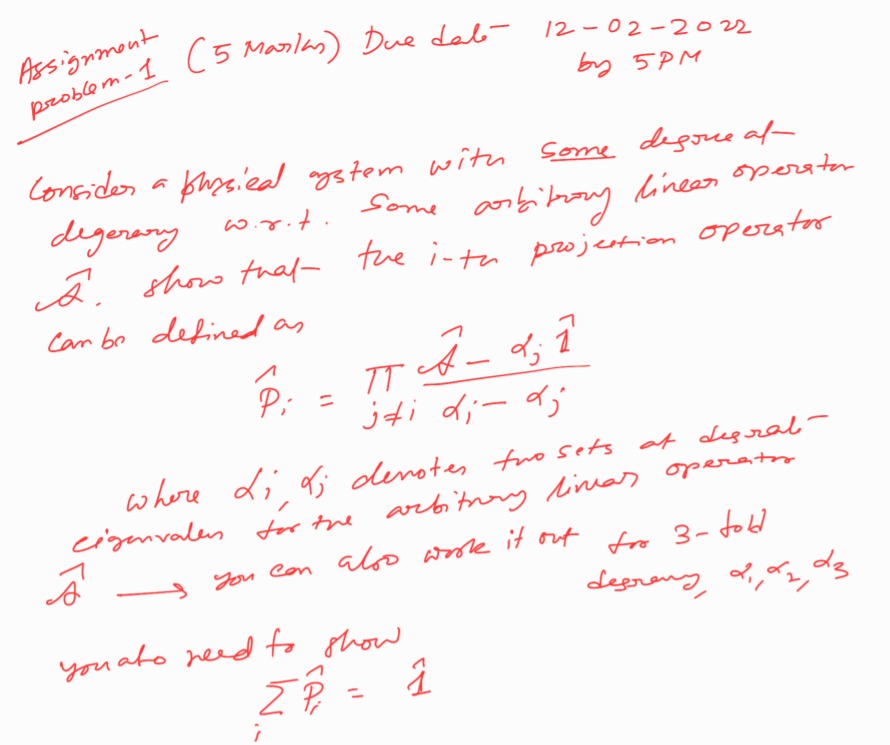 Assignment problem-1 (5 Marks) Due date 12-02-2022
by 5PM
Consider a physical system with some degree of
degeneracy w.r.t. some arbitrary linear operator
Â. show that the i-th projection operator
can be defined as
P̂ᵢ = Π_{j≠i} (Â - αⱼ 1̂)/(αᵢ - αⱼ)
where αᵢ, αⱼ denotes two sets of degenerate
eigenvalues for the arbitrary linear operator
Â → you can also work it out for 3-fold
degeneracy, α₁, α₂, α₃
you also need to show
Σᵢ P̂ᵢ = 1̂